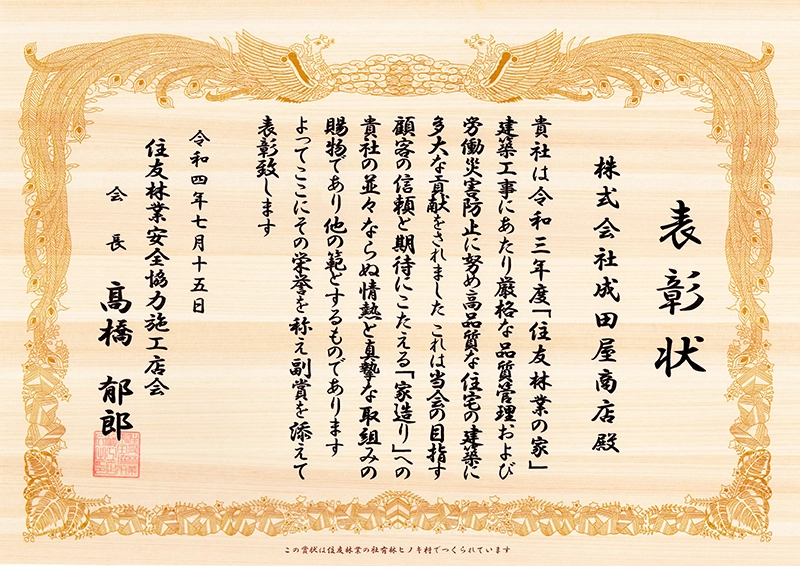 表彰状
株式会社成田屋商店殿
貴社は令和三年度「住友林業の家」
建築工事にあたり厳格な品質管理および
労働災害防止に努め高品質な住宅の建築に
多大な貢献をされました これは当会の目指す
顧客の信頼と期待にこたえる「家造り」への
貴社の並々ならぬ情熱と真摯な取組みの
賜物であり他の範とするものであります
よってここにその栄誉を称え副賞を添えて
表彰致します
令和四年七月十五日
住友林業安全協力施工店会
会長 髙橋 郁郎
この賞状は住友林業の社有林ヒノキ材でつくられています